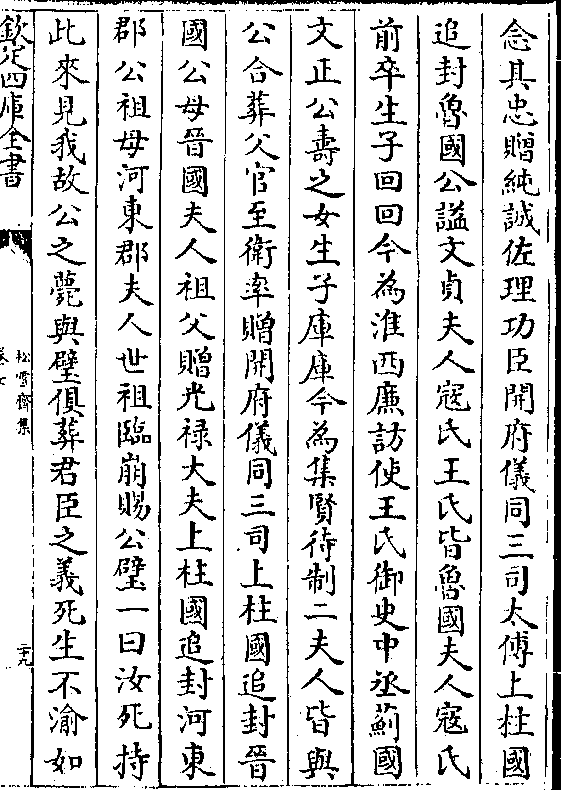 念其忠贈純誠佐理功臣開府儀同三司太傅上柱國
追封魯國公謚文貞夫人寇氏王氏皆魯國夫人寇氏
前卒生子回回今為淮西廉訪使王氏御史中丞薊國
文正公壽之女生子庫庫今為集賢待制二夫人皆與
公合葬父官至衛率贈開府儀同三司上柱國追封晉
國公母晉國夫人祖父贈光禄大夫上柱國追封河東
郡公祖母河東郡夫人世祖臨崩賜公璧一曰汝死持
此來見我故公之薨與璧俱葬君臣之義死生不渝如
欽定四庫全書
松雪齋集
卷七
二十九